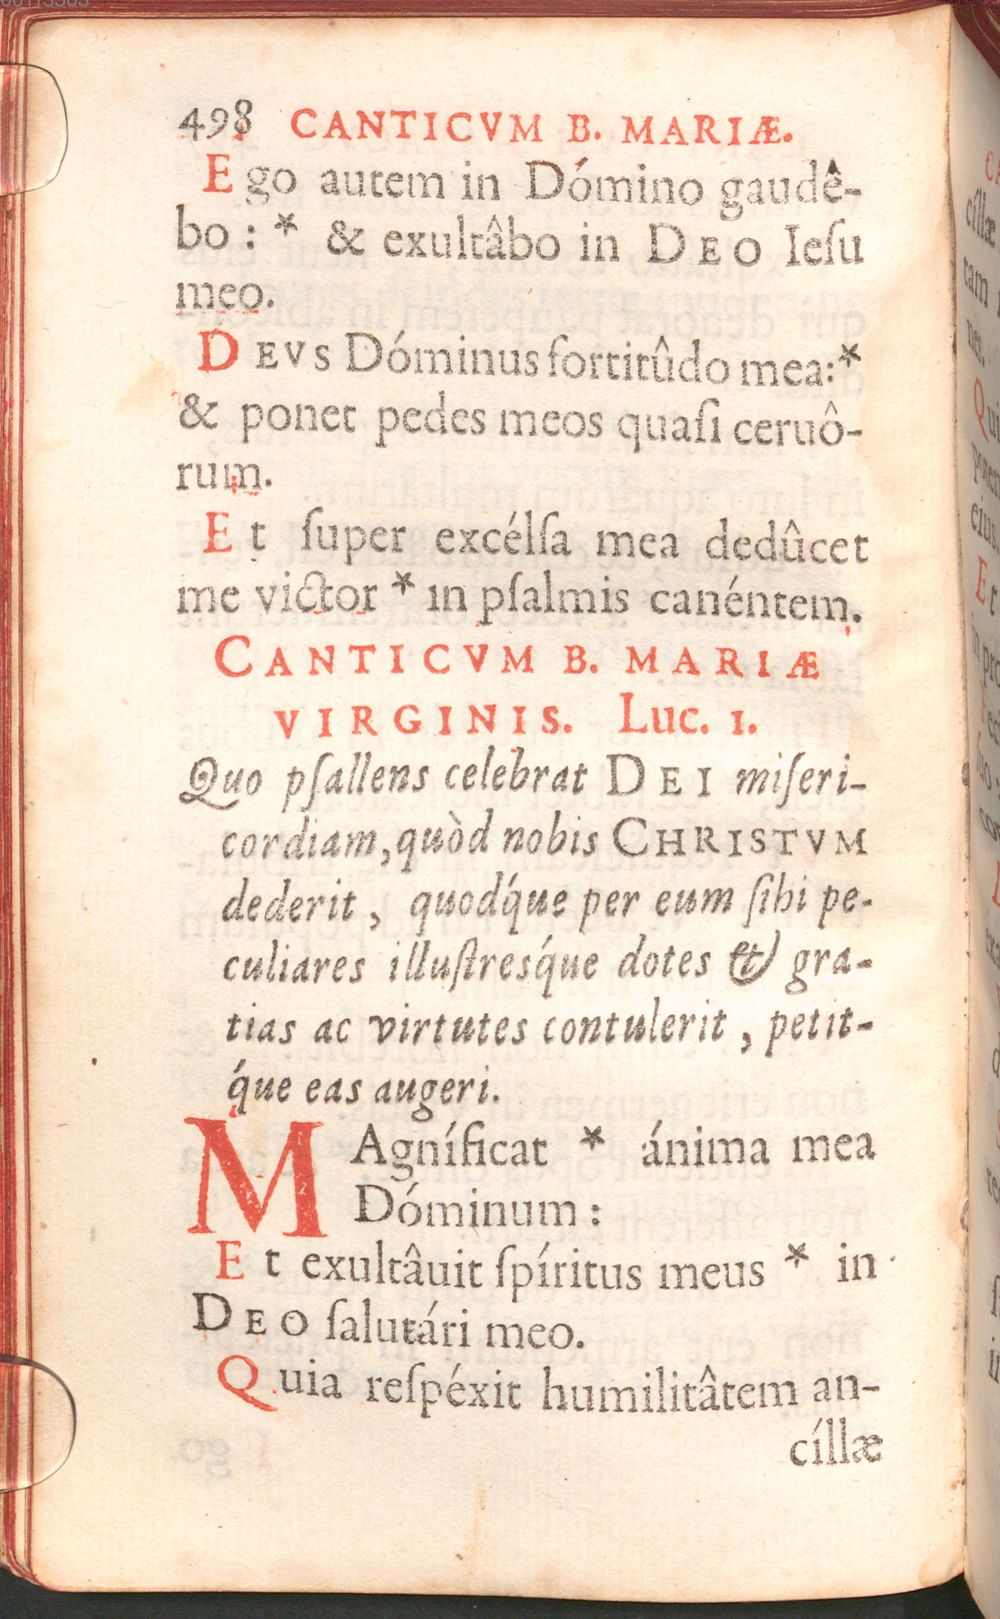 498 CANTICVM B. MARIÆ.
Ego autem in Dómino gaudê-
bo : * & exultâbo in DEO Ieſu
meo.
DEVS Dóminus fortitûdo mea: *
& ponet pedes meos quaſi ceruô-
rum.
Et ſuper excélſa mea dedûcet
me victor * in pſalmis canéntem.
CANTICVM B. MARIÆ
VIRGINIS. Luc. 1.
Quo pſallens celebrat DEI miſeri-
cordiam, quòd nobis CHRISTVM
dederit , quodq́ue per eum ſibi pe-
culiares illuſtresq́ue dotes & gra-
tias ac virtutes contulerit , petit-
q́ue eas augeri.
MAgníficat * ánima mea
Dóminum :
Et exultâuit ſpíritus meus * in
DEO ſalutári meo.
Quia reſpéxit humilitâtem an-
cíllæ